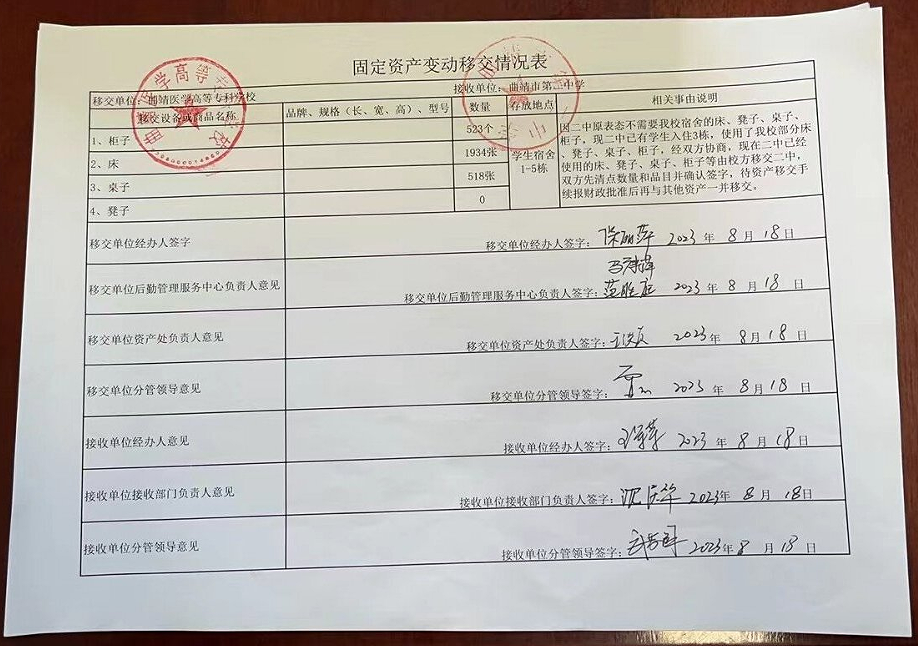 固定资产变动移交情况表
移交单位：曲靖医学高等专科学校 接收单位：曲靖市第二中学
移交设备或商品名称 品牌、规格（长、宽、高）、型号 数量 存放地点 相关事由说明
1、柜子 523个
2、床 1934张
3、桌子 518张
4、凳子 0
学生宿舍
1-5栋
因二中原表态不需要我校宿舍的床、凳子、桌子、
柜子，现二中已有学生入住3栋，使用了我校部分床
、凳子、桌子、柜子，经双方协商，现在二中已经
使用的床、凳子、桌子、柜子等由校方移交二中，
双方先清点数量和品目并确认签字，待资产移交手
续报财政批准后再与其他资产一并移交。
移交单位经办人签字 移交单位经办人签字： 2023 年 8 月 18 日
移交单位后勤管理服务中心负责人意见 移交单位后勤管理服务中心负责人签字： 2023 年 8 月 18 日
移交单位资产处负责人意见 移交单位资产处负责人签字： 2023 年 8 月 18 日
移交单位分管领导意见 移交单位分管领导签字： 2023 年 8 月 18 日
接收单位经办人意见 接收单位经办人签字： 2023 年 8 月 18 日
接收单位接收部门负责人意见 接收单位接收部门负责人签字： 沈庆华 2023 年 8 月 18 日
接收单位分管领导意见 接收单位分管领导签字： 2023 年 8 月 18 日